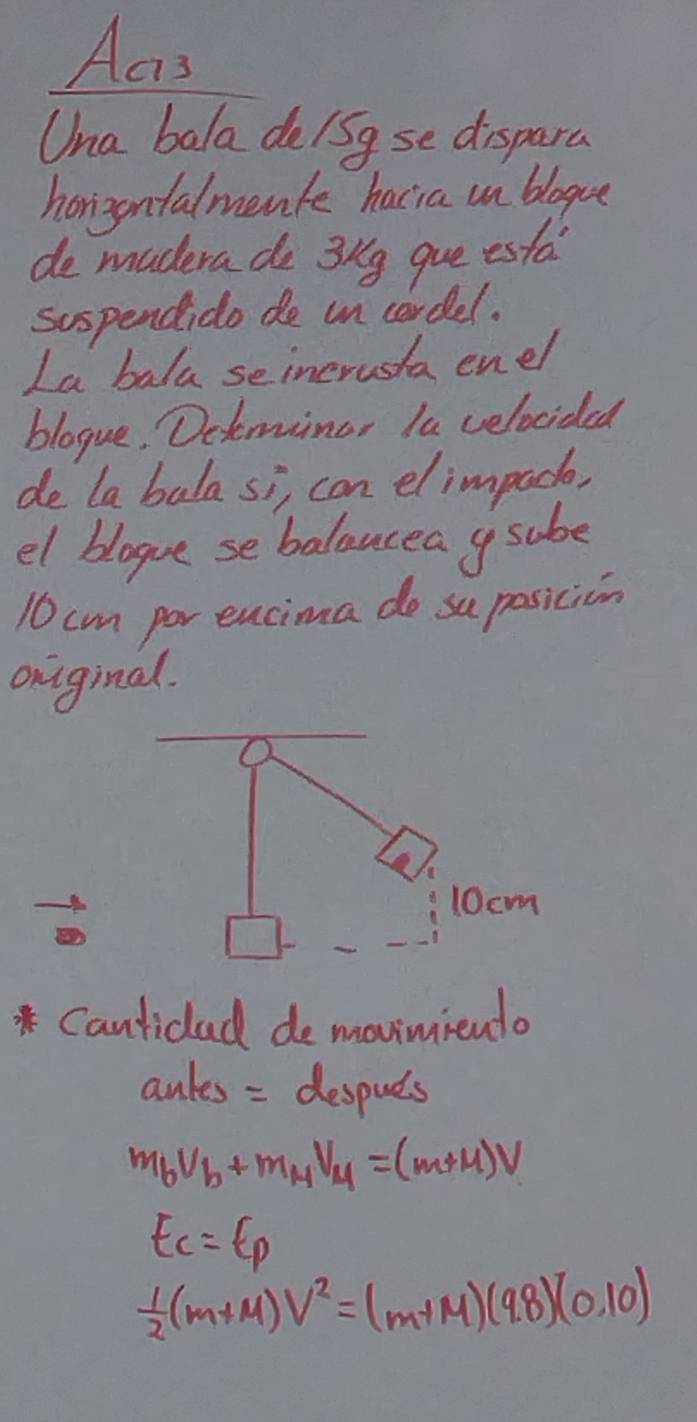 Act3
Una bala de 15g se dispara
horizontalmente hacia un bloque
de madera de 3Kg que está
suspendido de un cordel.
La bala se incrusta en el
bloque. Determinar la velocidad
de la bala si, con el impacto,
el bloque se balancea y sube
10 cm por encima de su posición
original.
10cm
* Cantidad de movimiento
antes = después
mbVb + mMVM = (m+M)V
Ec = Ep
½(m+M)V² = (m+M)(9.8)(0.10)